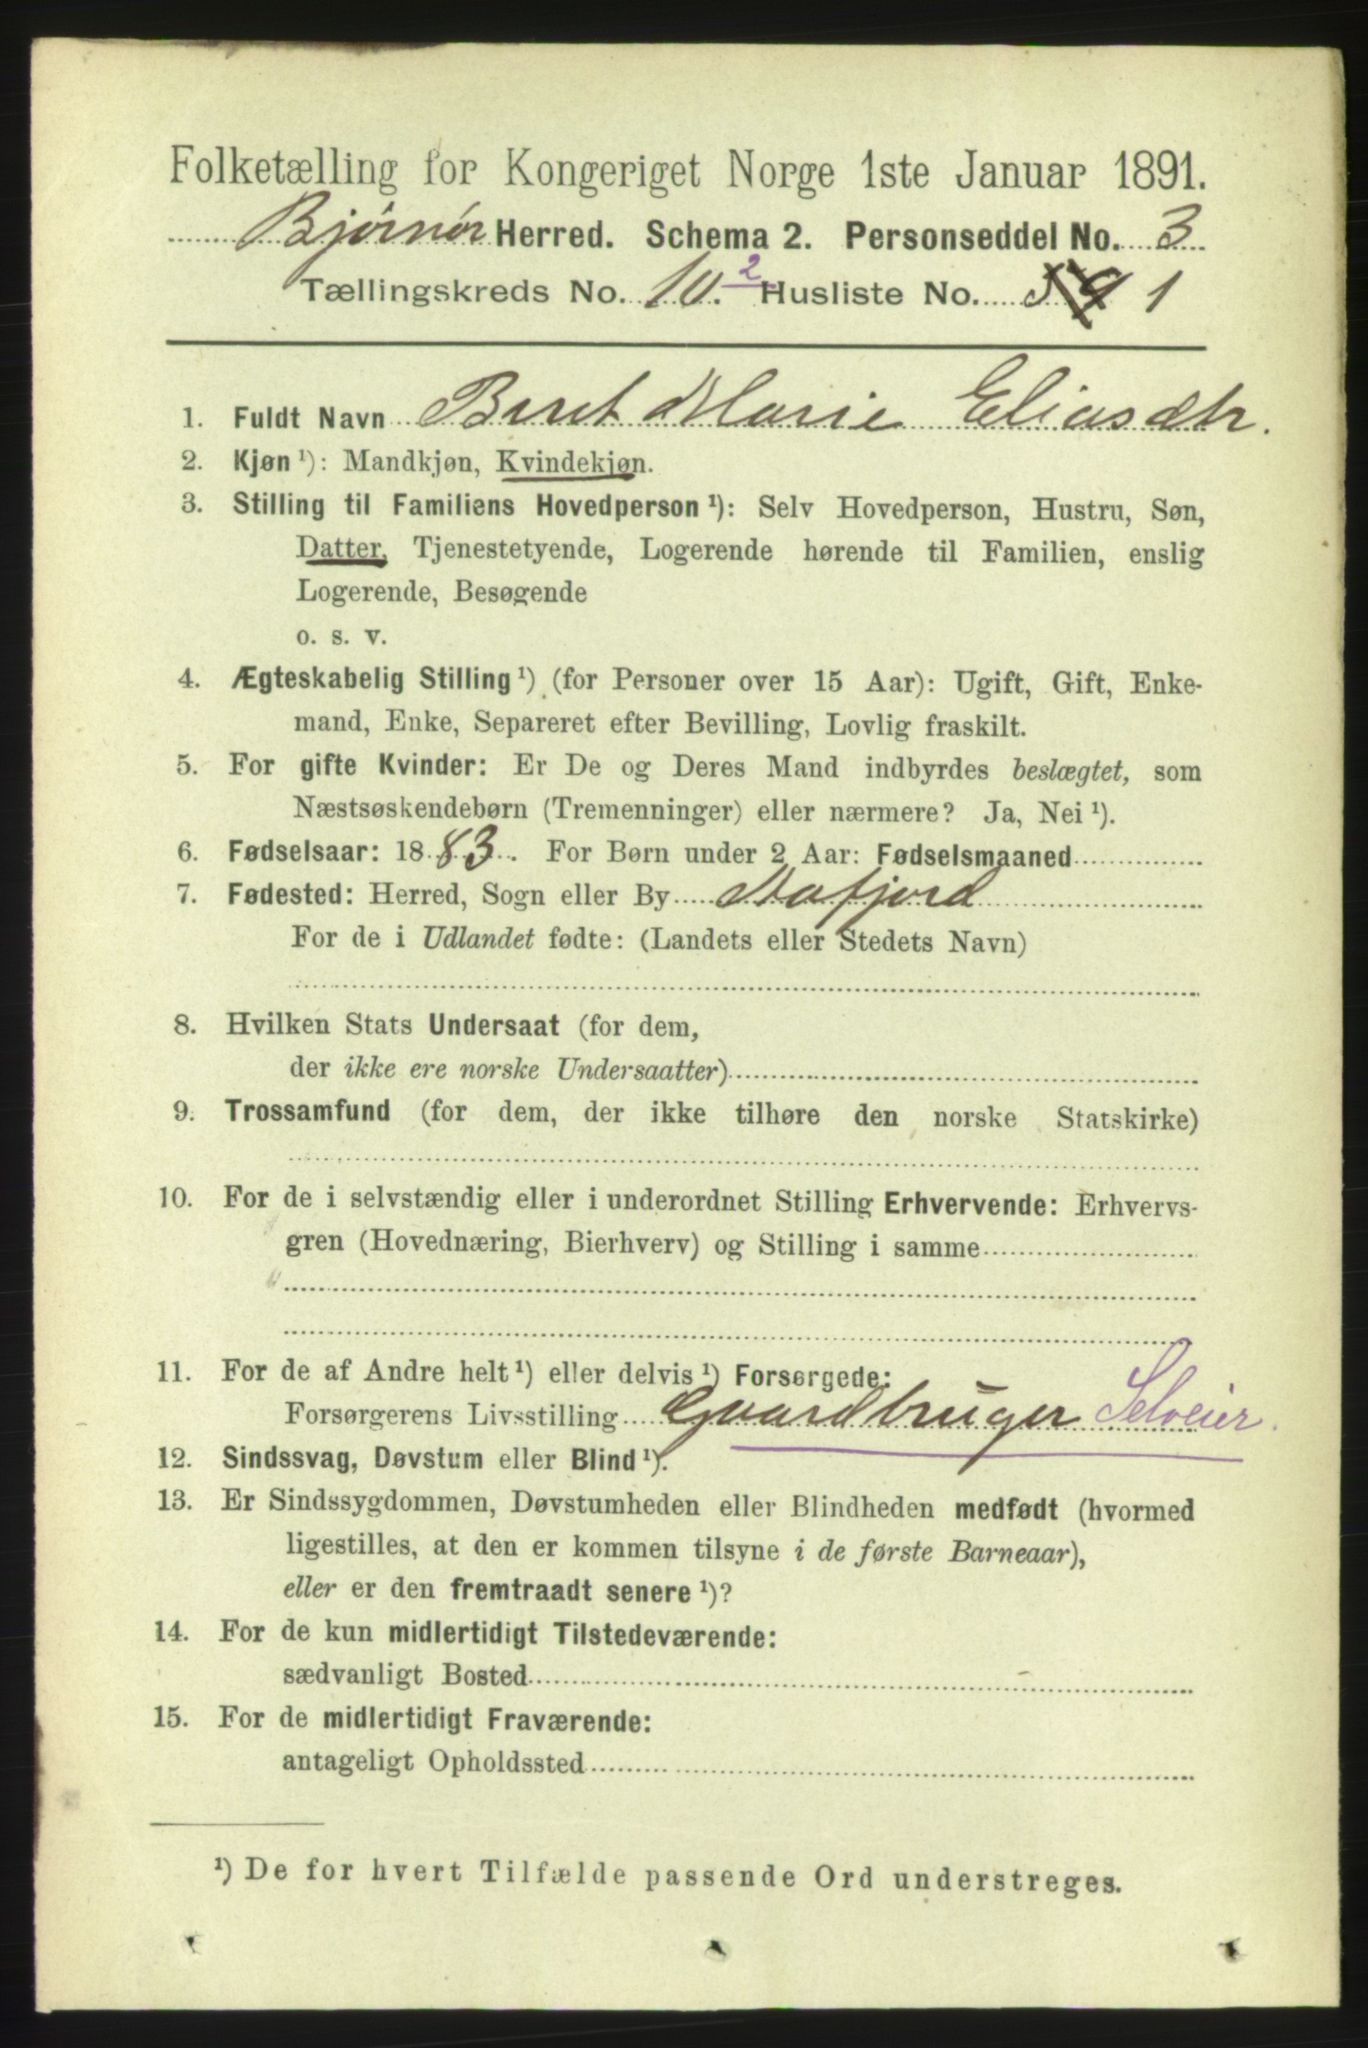 Folketælling for Kongeriget Norge 1ste Januar 1891.
Bjørnør Herred. Schema 2. Personseddel No. 3
Tællingskreds No. 10.2 Husliste No. 59 1
1. Fuldt Navn Beret Marie Eliasdtr.
2. Kjøn ¹): Mandkjøn, Kvindekjøn.
3. Stilling til Familiens Hovedperson ¹): Selv Hovedperson, Hustru, Søn,
Datter, Tjenestetyende, Logerende hørende til Familien, enslig
Logerende, Besøgende
o. s. v.
4. Ægteskabelig Stilling ¹) (for Personer over 15 Aar): Ugift, Gift, Enke-
mand, Enke, Separeret efter Bevilling, Lovlig fraskilt.
5. For gifte Kvinder: Er De og Deres Mand indbyrdes beslægtet, som
Næstsøskendebørn (Tremenninger) eller nærmere? Ja, Nei ¹).
6. Fødselsaar: 1883. For Børn under 2 Aar: Fødselsmaaned
7. Fødested: Herred, Sogn eller By Stofjord
For de i Udlandet fødte: (Landets eller Stedets Navn)
8. Hvilken Stats Undersaat (for dem,
der ikke ere norske Undersaatter)
9. Trossamfund (for dem, der ikke tilhøre den norske Statskirke)
10. For de i selvstændig eller i underordnet Stilling Erhvervende: Erhvervs-
gren (Hovednæring, Bierhverv) og Stilling i samme
11. For de af Andre helt ¹) eller delvis ¹) Forsørgede:
Forsørgerens Livsstilling Gaardbruger Selveier.
12. Sindssvag, Døvstum eller Blind ¹).
13. Er Sindssygdommen, Døvstumheden eller Blindheden medfødt (hvormed
ligestilles, at den er kommen tilsyne i de første Barneaar),
eller er den fremtraadt senere ¹)?
14. For de kun midlertidigt Tilstedeværende:
sædvanligt Bosted
15. For de midlertidigt Fraværende:
antageligt Opholdssted
¹) De for hvert Tilfælde passende Ord understreges.